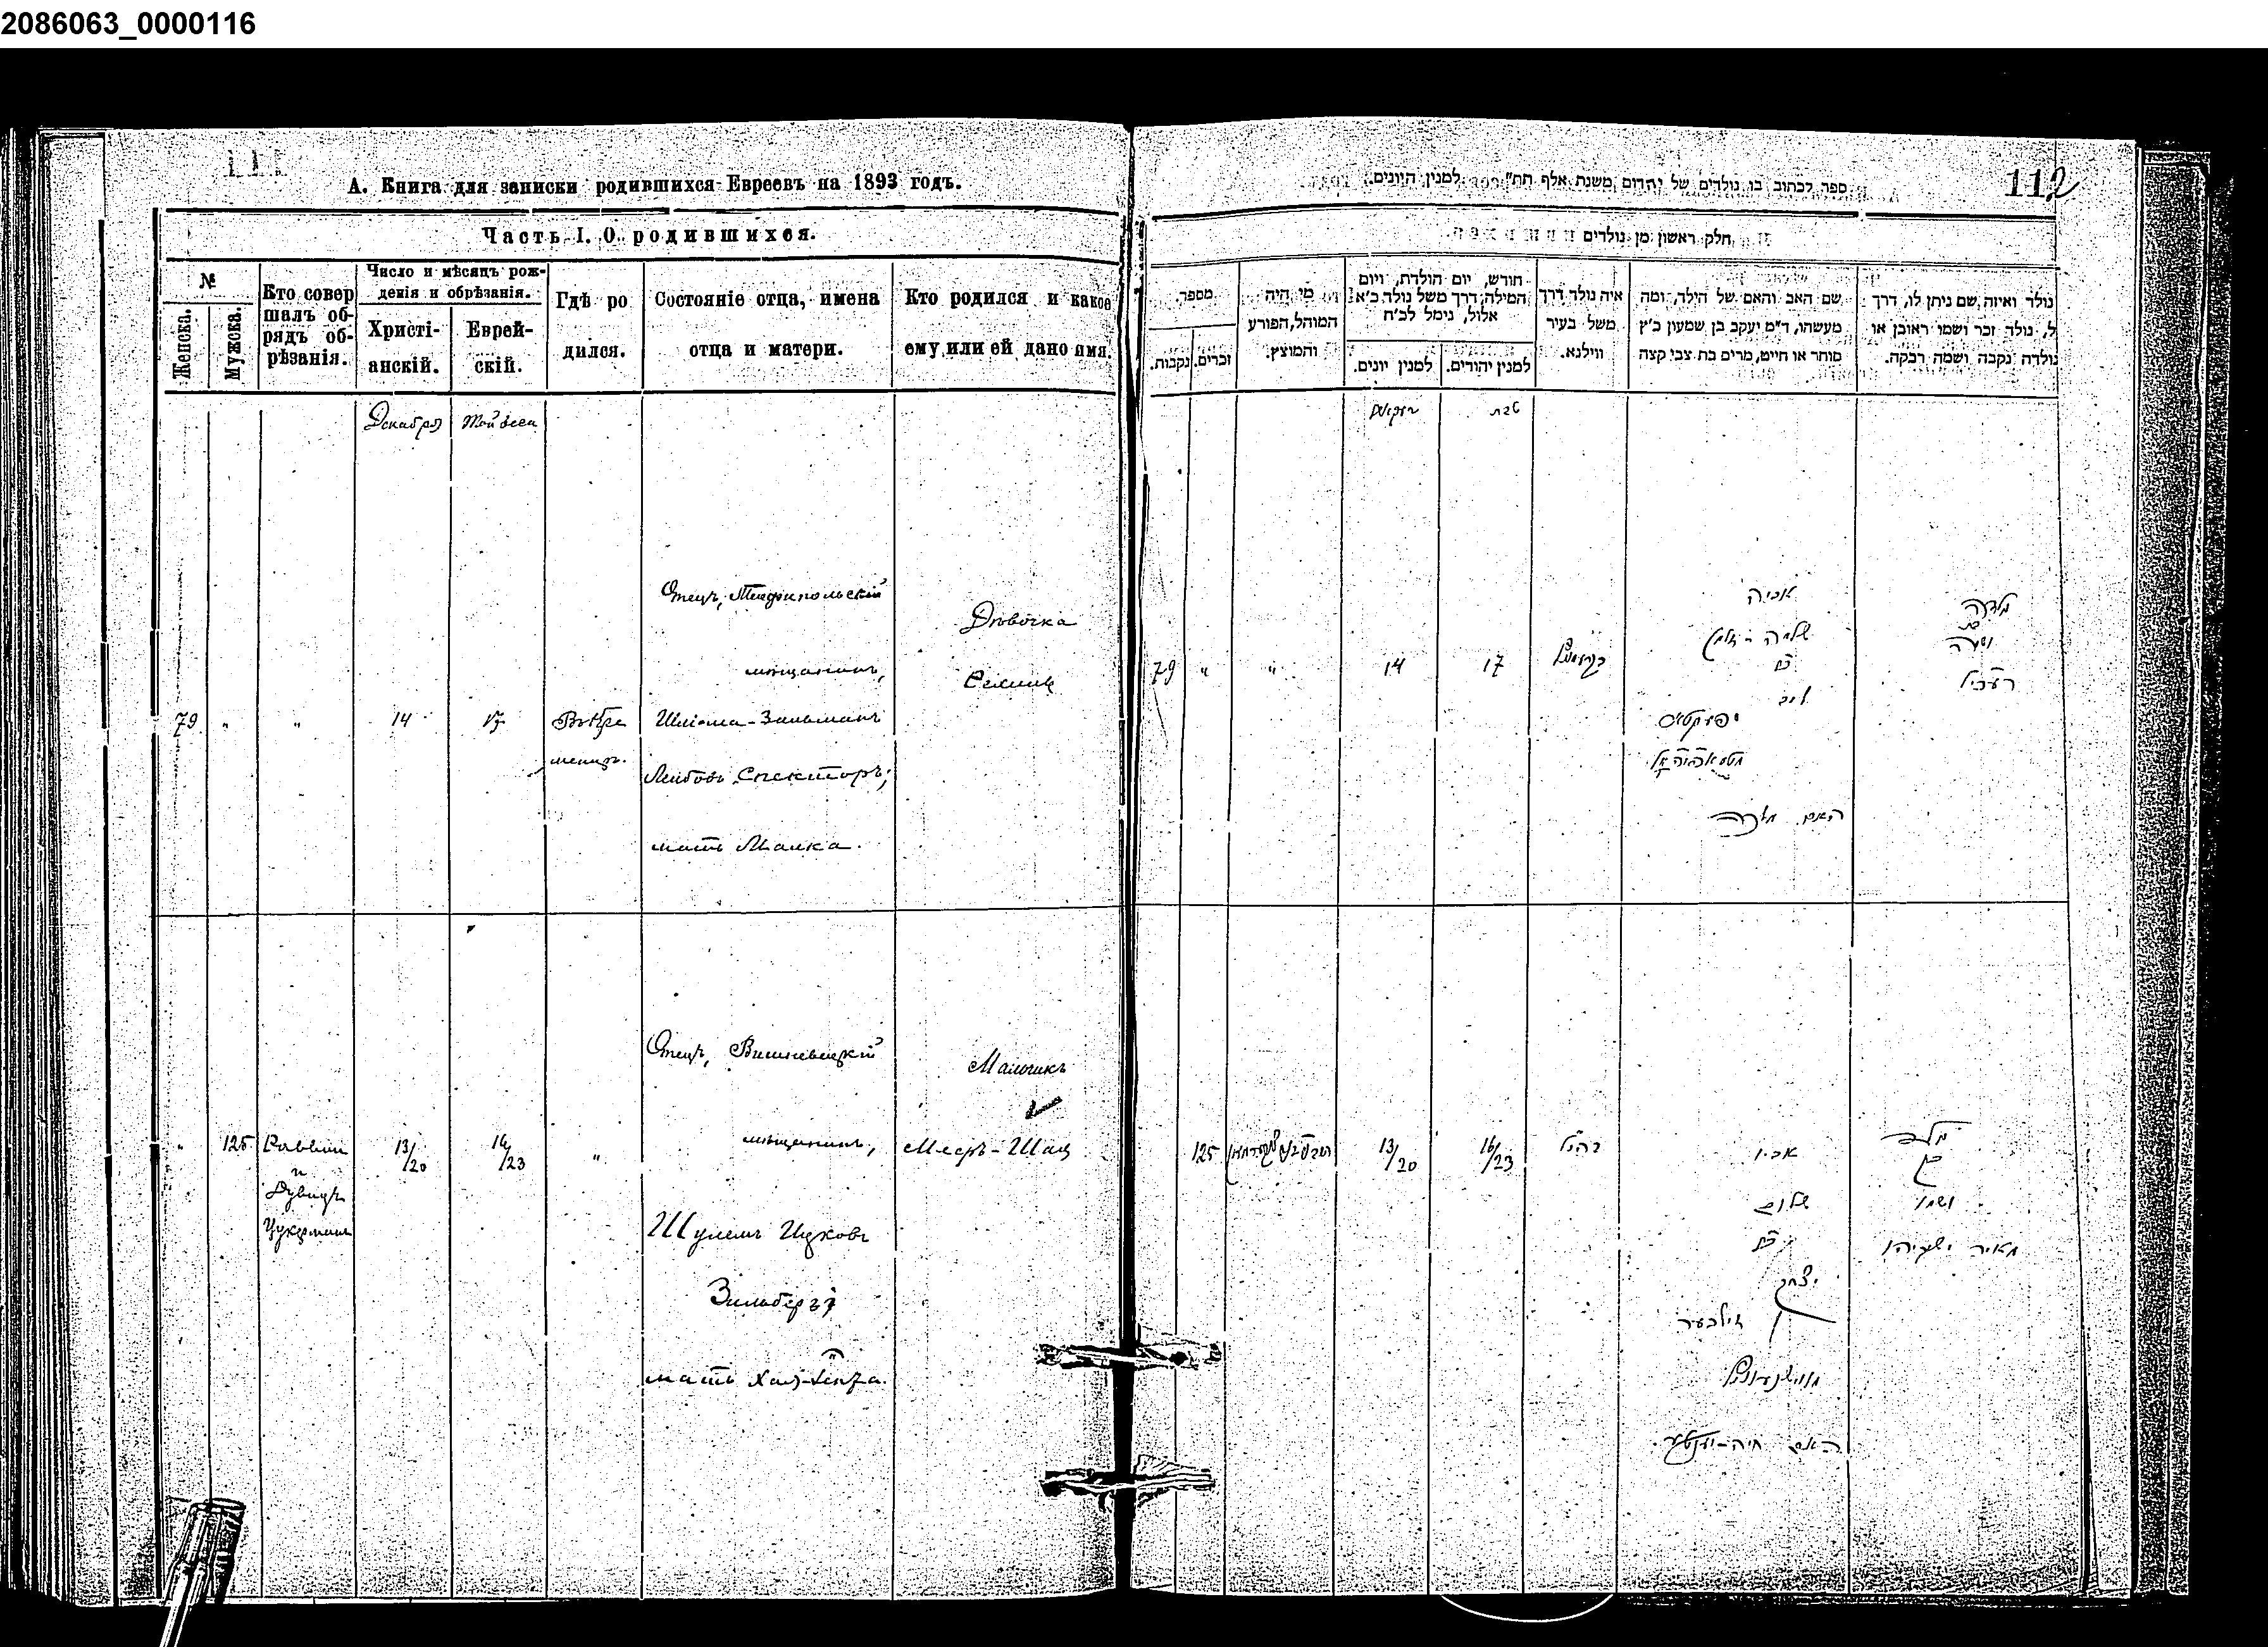 2086063_0000116
111
А. Книга для записки родившихся Евреевъ на 1893 годъ.
Часть I. О родившихся.
№
Женска.
Мужска.
Кто совер
шалъ об-
рядъ об-
рѣзанія.
Число и мѣсяцъ рож-
денія и обрѣзанія.
Христі-
анскій.
Еврей-
скій.
Гдѣ ро
дился.
Состояніе отца, имена
отца и матери.
Кто родился и какое
ему или ей дано имя.
Декабря
79
"
"
14
17
Въ Кре
менцѣ.
Отецъ,
мѣщанинъ,
Шліома-Зальманъ
Лейбовъ Спекторъ;
мать Малка.
Дѣвочка
"
125
Раввин
и
Цукерманъ
13/20
16/23
"
Отецъ, Вишневецкій
мѣщанинъ,
Шулемъ Ицковъ
Зильберъ;
мать
Мальчикъ
112
ספר לכתוב בו נולדים של יהדום משנת אלף תת" למנין היונים.
חלק ראשון מן נולדים
מספר.
נקבות.
זכרים.
מי היה
המוהל, הפורע
והמוצץ.
חודש, יום הולדת, ויום
המילה, דרך משל נולד כ'א
אלול, נימל לכ'ח
למנין יונים.
למנין יהודים.
איה נולד דרך
משל בעיר
ווילנא.
שם האב והאם של הילד, ומה
מעשהו, ד"מ יעקב בן שמעון כ'ץ
סוחר או חייט, מרים בת צבי קצה
נולד ואיזה שם ניתן לו, דרך
ל, נולד זכר ושמו ראובן או
נולדה נקבה ושמה רבקה.
טבת
79
"
"
14
17
אביה
האם מלכה
125
13/20
16/23
אביו
שלום
יצחק
זילבער
האם חיה-יענטע
ושמו
מאיר ישעיהו